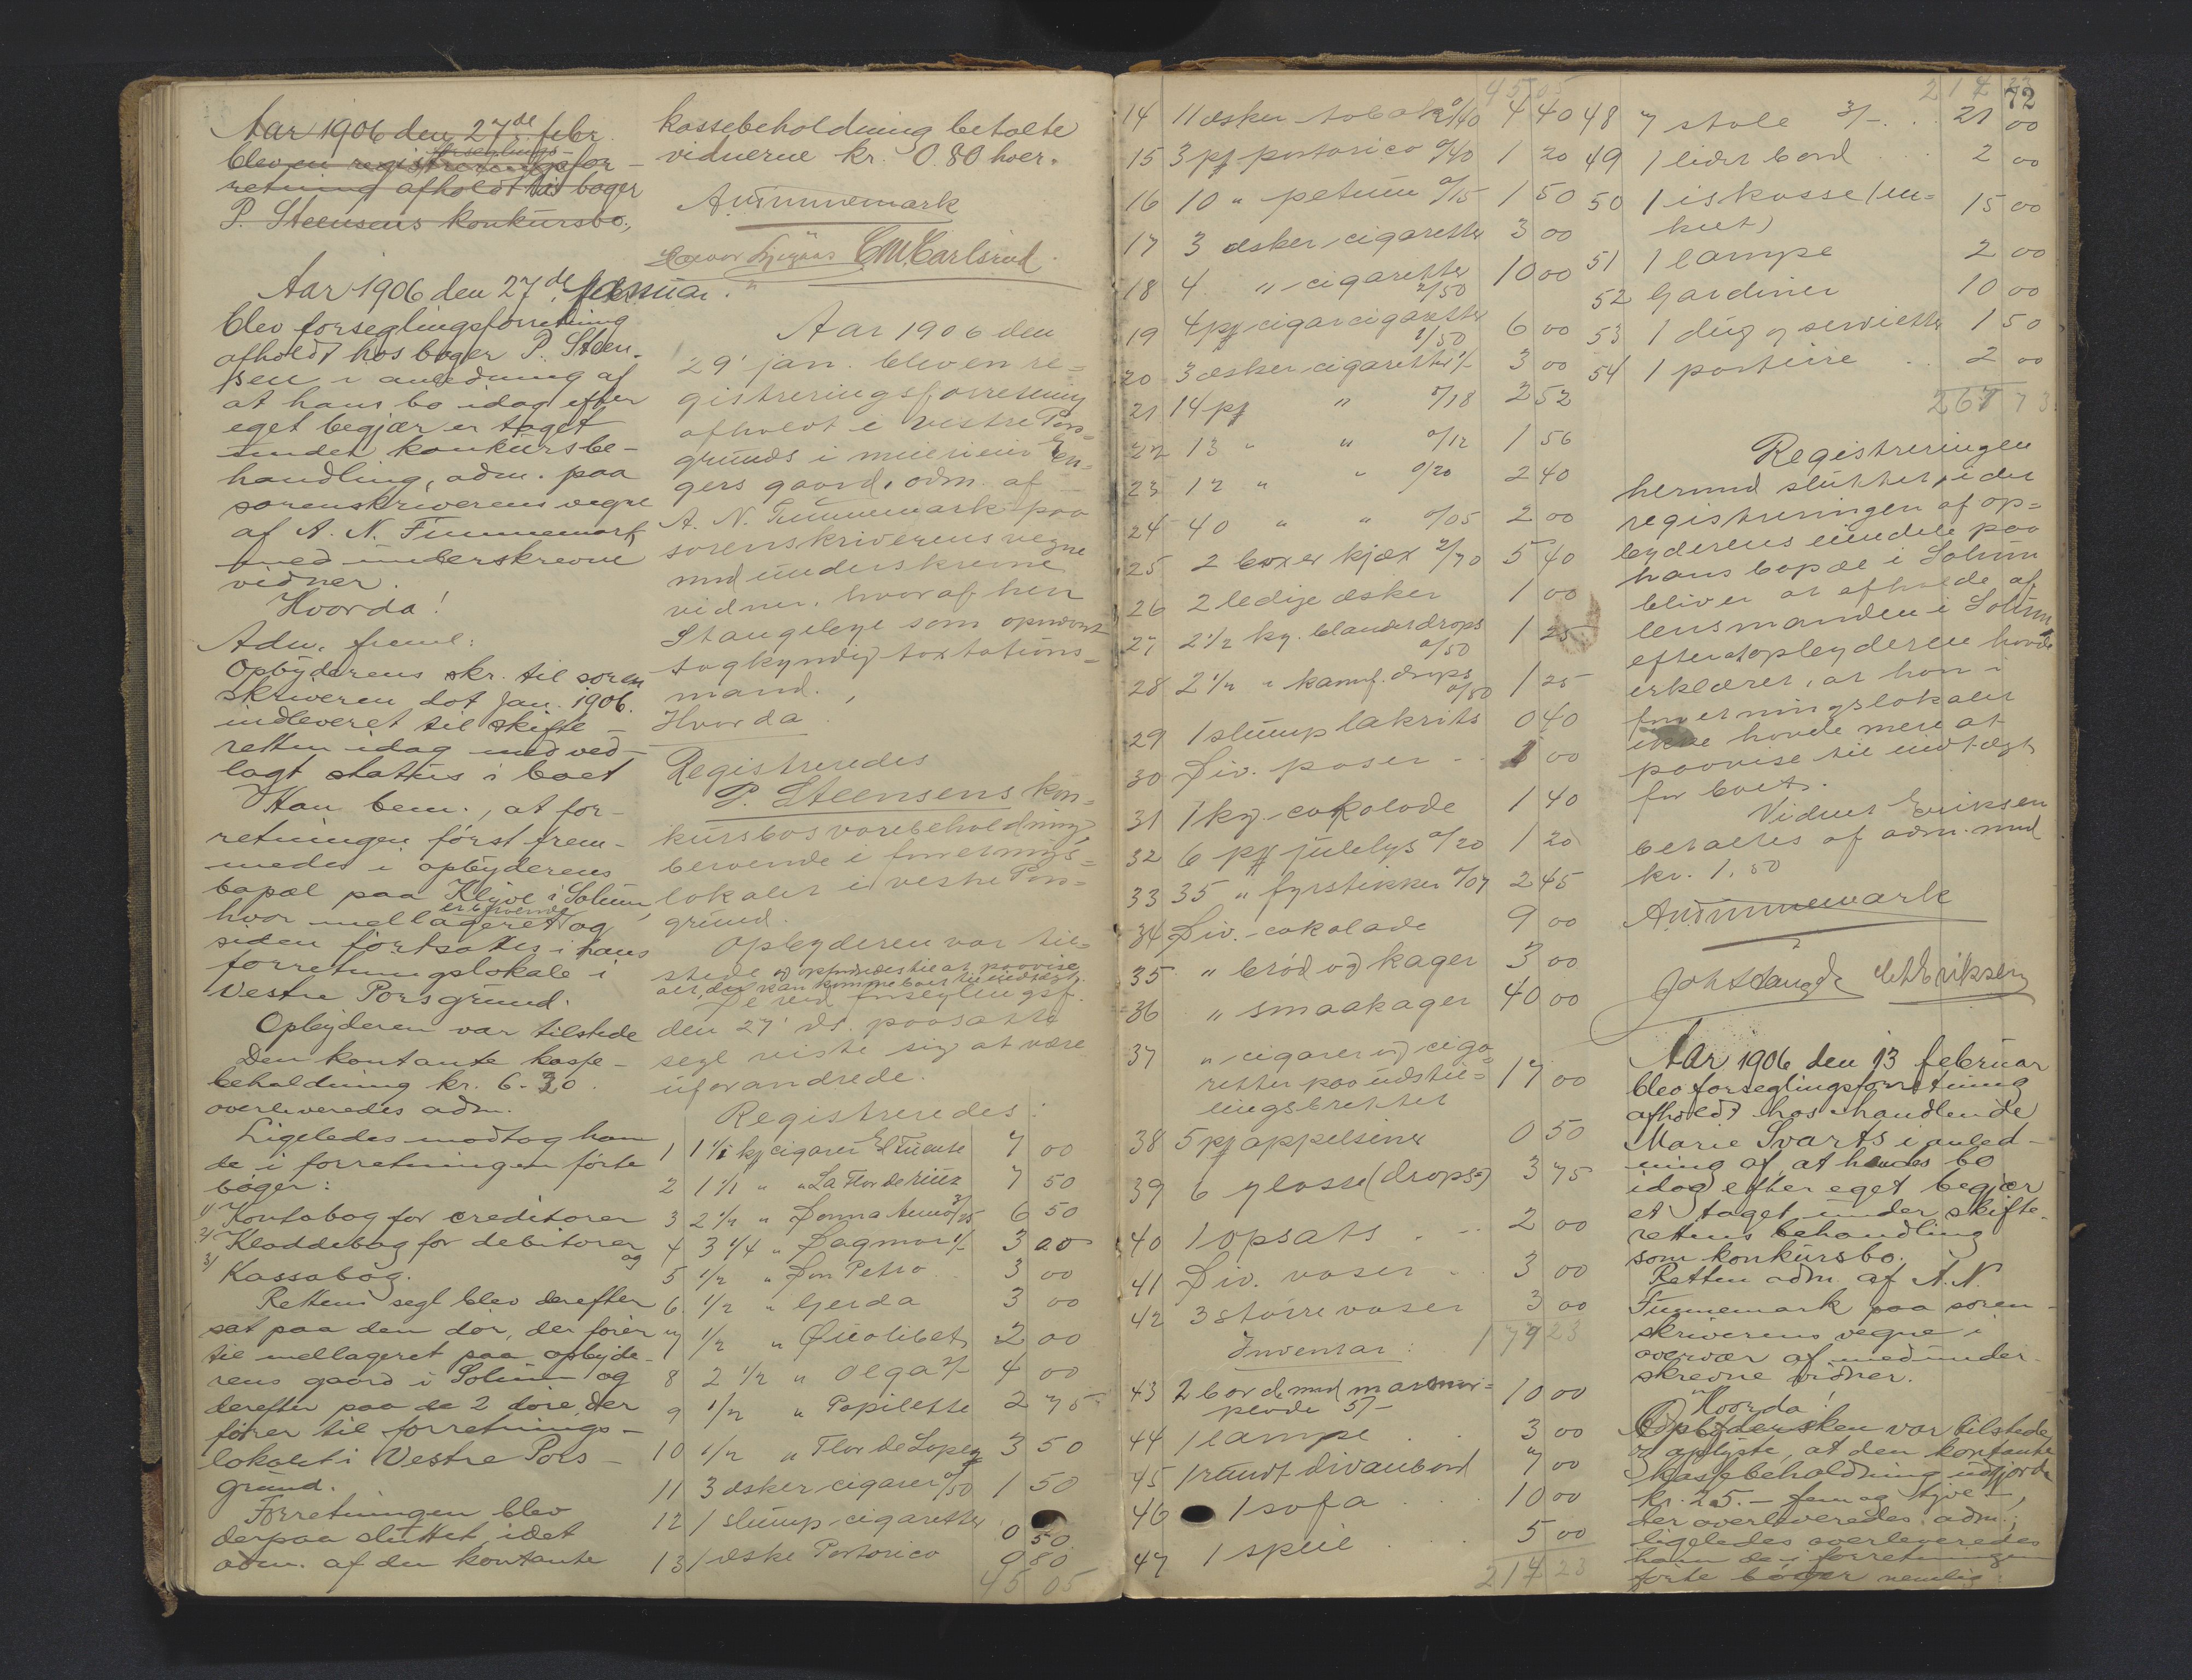 Aar 1906 den 27de febr.
blev en registrerings forseglings for-
retning afholdt hos bager
P. Steensens konkursbo.
Aar 1906 den 27de januar.
blev forseglingsforretning
afholdt hos bager P. Steen-
sen i anledning af
at hans bo idag efter
eget begjær er taget
under konkursbe-
handling, adm. paa
sorenskriverens vegne
af A. N. Timmemark
med underskrevne
vidner.
Hvorda!
Adm. freml:
Opbyderens skr. til soren
skriveren dat Jan. 1906.
indleveret til skifte-
retten idag med ved-
lagt status i boet
Han bem., at for-
retningen först frem-
medes i opbyderens
bopæl paa Klyve i Solum,
hvor mellageret er beroende og
siden fortsattes i hans
forretningslokale i
Vestre Porsgrund.
Opbyderen var tilstede
Den kontante kasse-
beholdning kr. 6.30.
overleveredes adm.
Ligeledes modtog han
de i forretningen förte
bøger:
1) Kontobog for creditorer
2) Kladdebog for debitorer
og
3) Kassabog.
Rettens segl blev derefter
sat paa den dør, der fører
til mellageret paa opbyde-
rens gaard i Solum og
derefter paa de 2 døre, der
fører til forretnings-
lokalet i Vestre Pors-
grund.
Forretningen blev
derpaa sluttet, idet
adm. af den kontante
kassebeholdning betalte
vidnerne kr. 0.80 hver.
ANTimmemark
C M Carlsrud.
Aar 1906 den
29' jan. blev en re=
gistreringsforretning
afholdt i vestre Pors=
grund i murermester En=
gers gaard, adm. af
A. N. Timmemark paa
sorenskriverens vegne
med underskrevne
vidner, hvoraf herr
Stangeleye som opnævnt
sagkyndig taxtations=
mand.
Hvorda!
Registreredes
P. Steensens kon=
kursbos varebeholdning,
beroende i forretnings=
lokalet i vestre Pors=
grund.
Opbyderen var til=
stede og opfordredes til at paavise
alt, der kan komme boet til indtægt.
De ved forseglingsf.
den 27' ds. paasatte
segl viste sig at være
uforandrede.
Registreredes:
1 1 1/1 kj cigarer El Fuente 7 00
2 1 1/1 " " La Flor de 7 50
3 2 1/2 " Donna Anna 6 50
4 3 1/4 " Dagmar 1/- 3 00
5 1/2 " Don Petro 3 00
6 1/2 " Gerda 3 00
7 1/2 " Quolibet 2 00
8 2 1/2 " Olga 2/- 4 00
9 1/2 " Papilette 2 75
10 1/2 " Flor de Lopez 3 50
11 3 æsker cigarer 0/50 1 50
12 1 slump cigaretter 0 50
13 1 æske Portorico 0 80
45 05
45 05
14 11 æsker tobak 0/40 4 40
15 3 pk portorico 0/40 1 20
16 10 " petum 0/15 1 50
17 3 æsker cigaretter 3 00
18 4 " cigaretter 2/50 10 00
19 4 pk cigarcigaretter 1/50 6 00
20 3 æsker cigaretter 1/- 3 00
21 14 pk " 0/18 2 52
22 13 " " 0/12 1 56
23 12 " " 0/20 2 40
24 40 " " 0/05 2 00
25 2 boxer kjæx 2/70 5 40
26 2 ledige æsker 1 00
27 2 1/2 kg. blandet drops 0/50 1 25
28 2 1/2 " kamf. drops 0/50 1 25
29 1 slump lakrits 0 40
30 Div. poser 1 00
31 1 kg. cokolade 1 40
32 6 pk julelys 0/20 1 20
33 35 " fyrstikker 0/07 2 45
34 Div. cokolade 9 00
35 " bröd og kager 3 00
36 " smaakager 40 00
37 " cigarer og ciga=
retter paa udstil=
lingsbrettet 17 00
38 5 pk appelsiner 0 50
39 6 glasse (drops) 3 75
40 1 opsats 2 00
41 Div. vaser 3 00
42 3 större vaser 3 00
179 23
Inventar:
43 2 bord med marmor=
plade 5/- 10 00
44 1 lampe 3 00
45 1 rundt divanbord 7 00
46 1 sofa 10 00
47 1 speil 5 00
214 23
214 23
72
48 7 stole 3/- 21 00
49 1 lidet bord 2 00
50 1 iskasse (en=
kelt) 15 00
51 1 lampe 2 00
52 Gardiner 10 00
53 1 dug og servietter 1 50
54 1 portiere 2 00
267 73
Registreringen
hermed sluttet, idet
registreringen af op=
byderens eiendele paa
hans bopæl i Solum
bliver at afholde af
lensmanden i Solum
efterat opbyderen havde
erklæret, at han i
forretningslokalet
ikke havde mere at
paavise til indtægt
for boet.
Vidnet Eriksen
betaltes af adm. med
kr. 1.50
ANTimmemark
Eriksen
Aar 1906 den 13 februar
blev forseglingsforretning
afholdt hos handlende
Marie Svarts i anled-
ning af, at hendes bo
idag efter eget begjær
et taget under skifte-
rettens behandling
som konkursbo.
Retten adm. af A. N.
Timmemark paa soren-
skriverens vegne i
overvær af medunder-
skrevne vidner.
Hvorda!
Opbydersken var tilstede
og oplyste, at den kontante
kassebeholdning udgjorde
kr. 25.– fem og tyve –,
der overleveredes adm.;
ligeledes overleveredes
ham de i forretningen
förte bøger nemlig